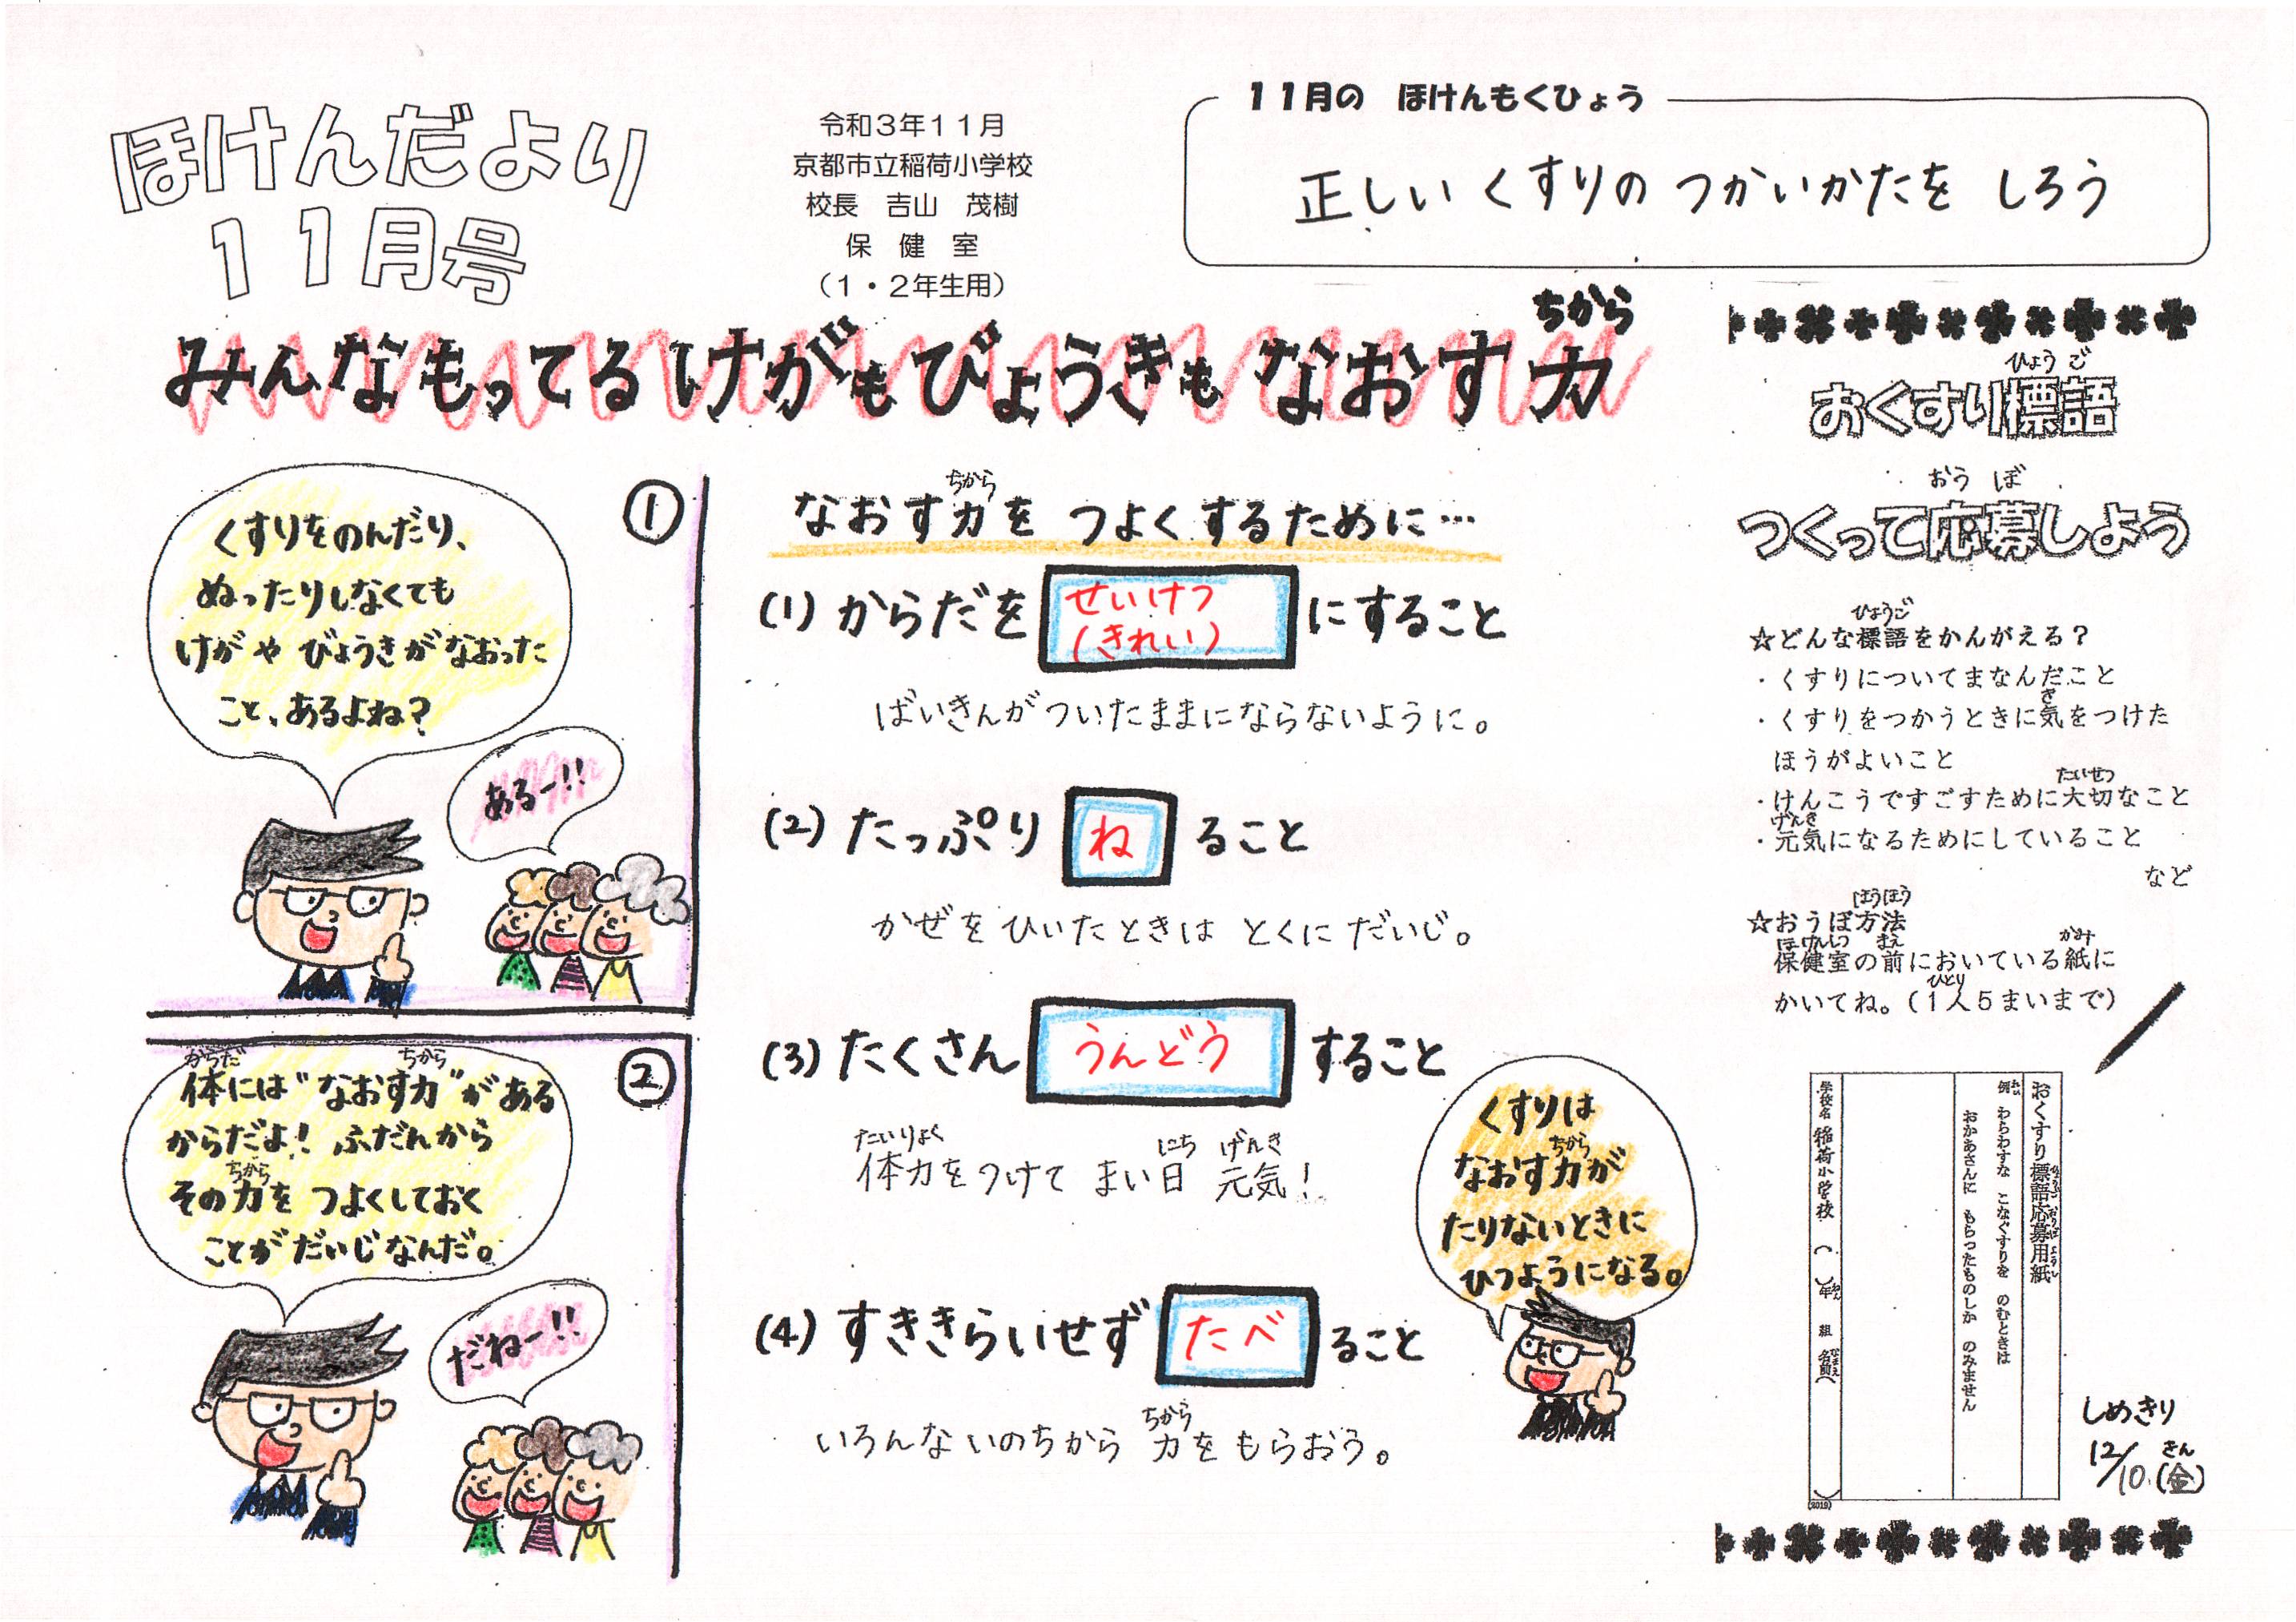 ほけんだより
11月号
令和3年11月
京都市立稲荷小学校
校長 吉山 茂樹
保 健 室
(1・2年生用)
11月の ほけんもくひょう
正しい くすりの つかいかたを しろう
ちから
みんなもってる けがも びょうきも なおす力
①
くすりをのんだり、
ぬったりしなくても
けがや びょうきが なおった
こと、あるよね?
あるー!!
②
からだ ちから
体には"なおす力"がある
からだよ! ふだんから
ちから
その力を つよくしておく
ことが だいじなんだ。
だねー!!
ちから
なおす力を つよくするために…
(1) からだを せいけつ (きれい) にすること
ばいきんが ついたままにならないように。
(2) たっぷり ね ること
かぜを ひいたときは とくに だいじ。
(3) たくさん うんどう すること
たいりょく にち げんき
体力をつけて まい日 元気!
(4) すききらいせず たべ ること
ちから
いろんな いのちから 力を もらおう。
くすりは
ちから
なおす力が
たりないときに
ひつようになる。
ひょうご
おくすり標語
おうぼ
つくって応募しよう
ひょうご
☆どんな標語をかんがえる?
・くすりについてまなんだこと
き
・くすりをつかうときに気をつけた
ほうがよいこと
たいせつ
・けんこうですごすために大切なこと
げんき
・元気になるためにしていること
など
ほうほう
☆おうぼ方法
ほけんしつ まえ かみ
保健室の前においている紙に
ひとり
かいてね。(1人5まいまで)
おくすり標語応募用紙
例 わらわすな こなぐすりを のむときは
おかあさんに もらったものしか のみません
学校名 稲荷小学校 ( )年 組 名前( )
(2019)
しめきり
きん
12/10 (金)